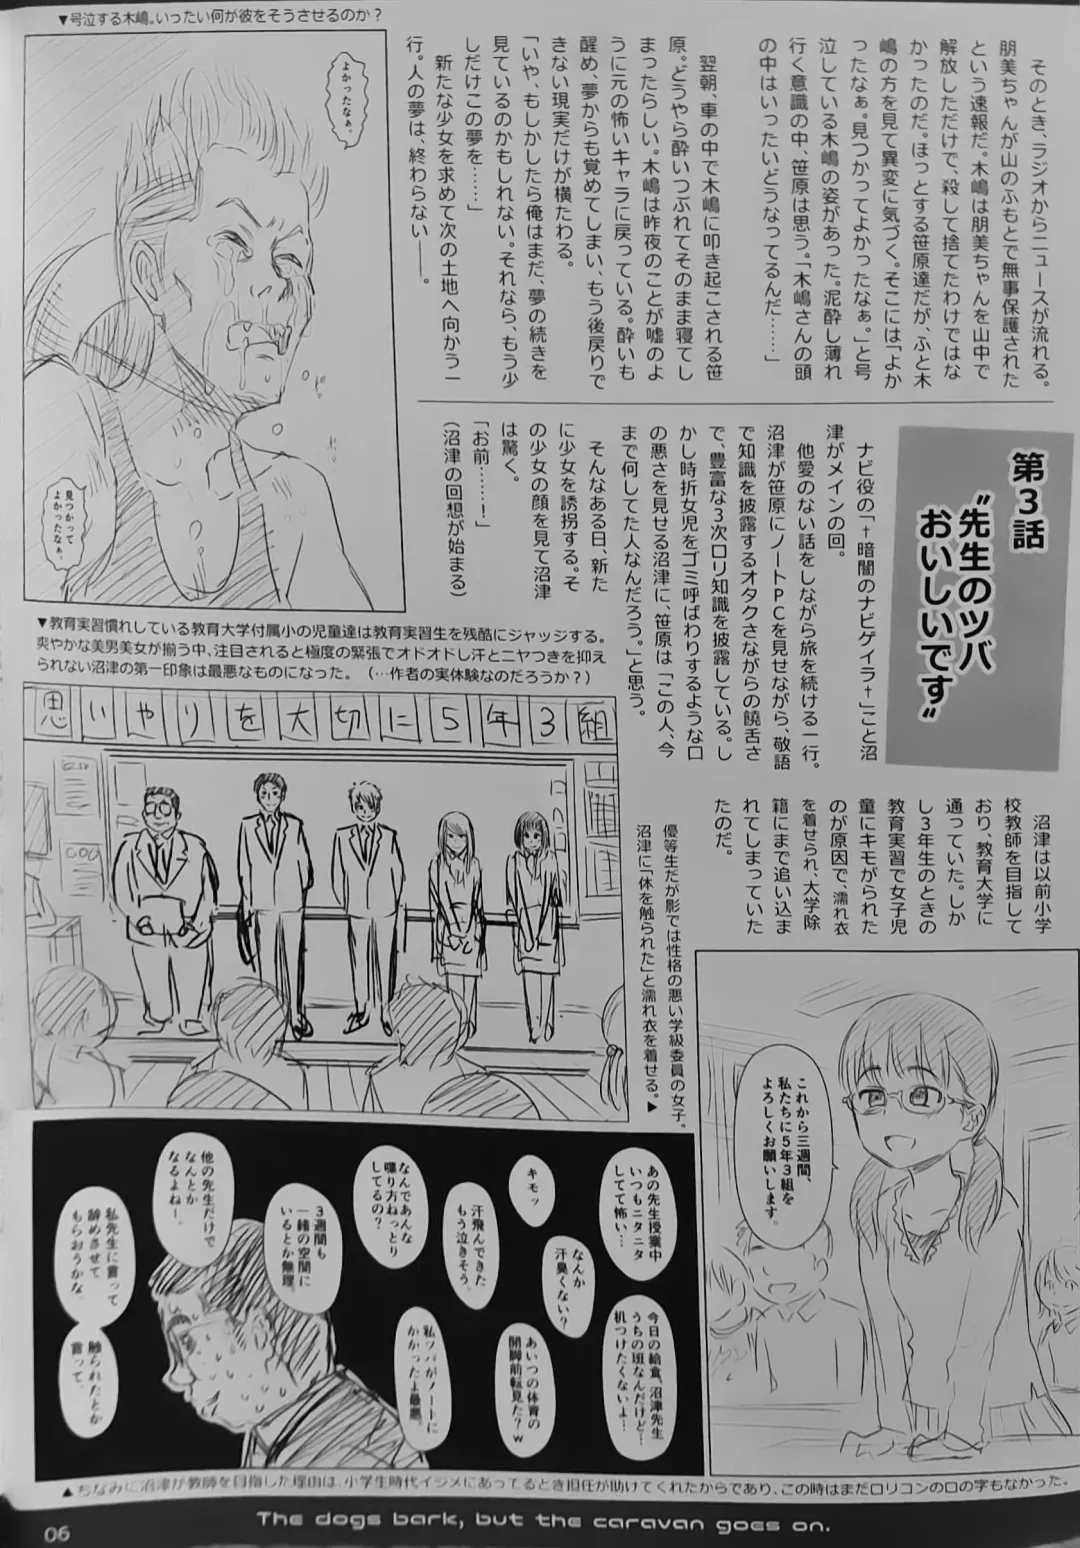 ▼号泣する木嶋。いったい何が彼をそうさせるのか?
そのとき、ラジオからニュースが流れる。
朋美ちゃんが山のふもとで無事保護された
という速報だ。木嶋は朋美ちゃんを山中で
解放しただけで、殺して捨てたわけではな
かったのだ。ほっとする笹原達だが、ふと木
嶋の方を見て異変に気づく。そこには「よか
ったなぁ。見つかってよかったなぁ。」と号
泣している木嶋の姿があった。泥酔し薄れ
行く意識の中、笹原は思う。「木嶋さんの頭
の中はいったいどうなってるんだ……」
翌朝、車の中で木嶋に叩き起こされる笹
原。どうやら酔いつぶれてそのまま寝てし
まったらしい。木嶋は昨夜のことが嘘のよ
うに元の怖いキャラに戻っている。酔いも
醒め、夢からも覚めてしまい、もう後戻りで
きない現実だけが横たわる。
「いや、もしかしたら俺はまだ、夢の続きを
見ているのかもしれない。それなら、もう少
しだけこの夢を……」
新たな少女を求めて次の土地へ向かう一
行。人の夢は、終わらない――。
よかったなぁ。
見つかって
よかったなぁ。
第3話
"先生のツバ
おいしいです"
ナビ役の「†暗闇のナビゲイラ†」こと沼
津がメインの回。
他愛のない話をしながら旅を続ける一行。
沼津が笹原にノートPCを見せながら、敬語
で知識を披露するオタクさながらの饒舌さ
で、豊富な3次ロリ知識を披露している。し
かし時折女児をゴミ呼ばわりするような口
の悪さを見せる沼津に、笹原は「この人、今
まで何してた人なんだろう。」と思う。
そんなある日、新た
に少女を誘拐する。そ
の少女の顔を見て沼津
は驚く。
「お前……！」
(沼津の回想が始まる)
沼津は以前小学
校教師を目指して
おり、教育大学に
通っていた。しか
し3年生のときの
教育実習で女子児
童にキモがられた
のが原因で、濡れ衣
を着せられ、大学除
籍にまで追い込ま
れてしまっていた
たのだ。
▼教育実習慣れしている教育大学付属小の児童達は教育実習生を残酷にジャッジする。
爽やかな美男美女が揃う中、注目されると極度の緊張でオドオドし汗とニヤつきを抑え
られない沼津の第一印象は最悪なものになった。(…作者の実体験なのだろうか?)
思いやりを大切に5年3組
優等生だが影では性格の悪い学級委員の女子。
沼津に「体を触られた」と濡れ衣を着せる。▶
これから三週間、
私たちに5年3組を
よろしくお願いします。
あの先生授業中
いつもニタニタ
してて怖い…
キモッ
なんか
汗臭くない？
汗飛んできた
もう泣きそう。
なんであんな
喋り方ねっとり
してるの？
3週間も
一緒の空間に
いるとか無理。
他の先生だけで
なんとか
なるよねー。
私先生に言って
辞めさせて
もらおうかな。
触られたとか
言って。
今日の給食、沼津先生
うちの班なんだけど…
机つけたくないよ…
あいつの体育の
開脚前転見た？w
私ツバがノートに
かかったよ最悪。
▲ちなみに沼津が教師を目指した理由は、小学生時代イジメにあってるとき担任が助けてくれたからであり、この時はまだロリコンのロの字もなかった。
06
The dogs bark, but the caravan goes on.